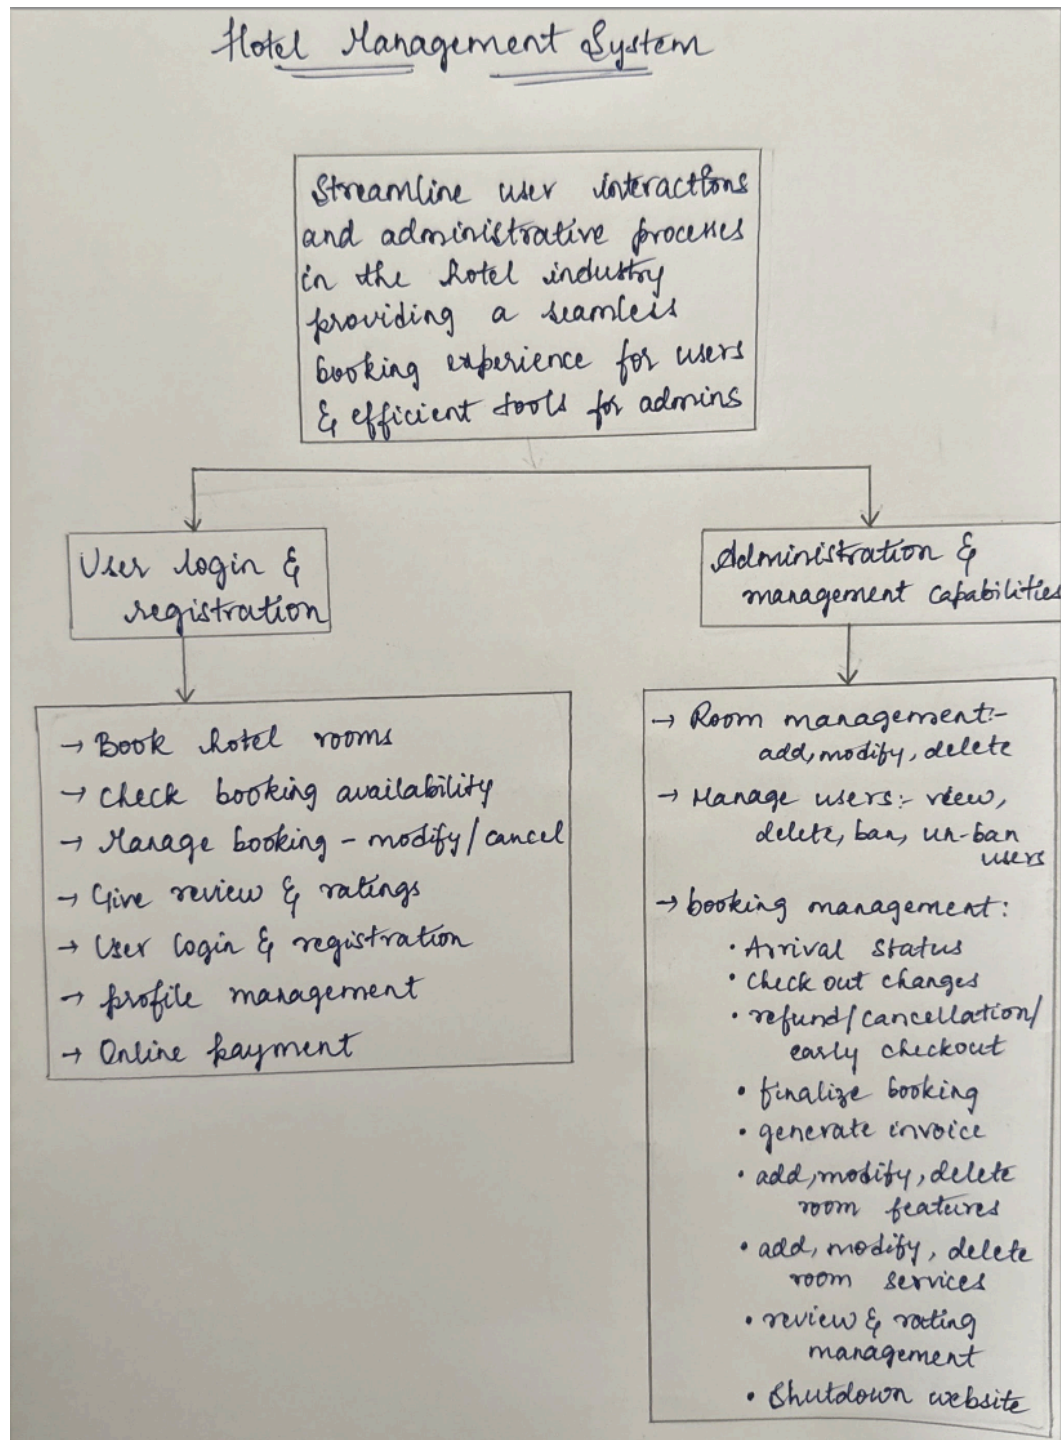 Hotel Management System
Streamline user interactions
and administrative processes
in the hotel industry
providing a seamless
booking experience for users
& efficient tools for admins
User login &
registration
→ Book hotel rooms
→ check booking availability
→ Manage booking - modify/cancel
→ Give review & ratings
→ User login & registration
→ profile management
→ Online payment
Administration &
management capabilities
→ Room management:-
add, modify, delete
→ Manage users:- view,
delete, ban, un-ban
users
→ booking management:
• Arrival status
• check out changes
• refund/cancellation/
early checkout
• finalize booking
• generate invoice
• add, modify, delete
room features
• add, modify, delete
room services
• review & rating
management
• Shutdown website